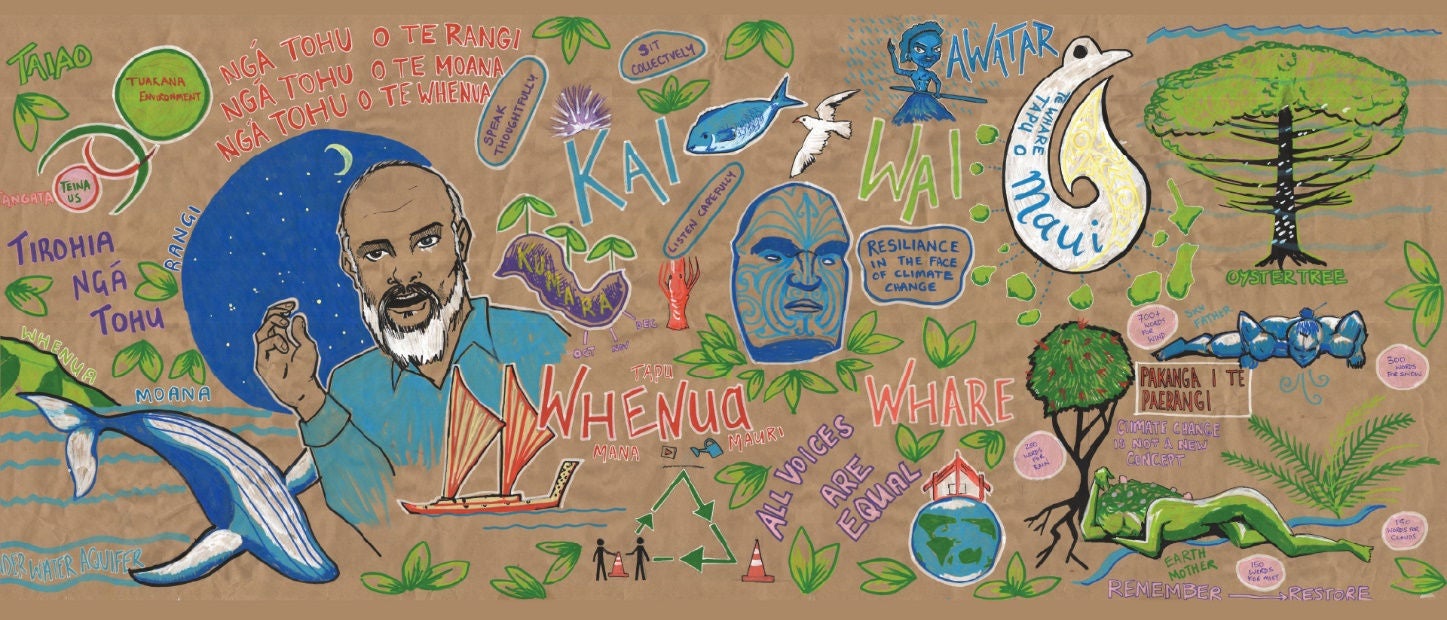 TAIAO
TUAKANA
ENVIRONMENT
TANGATA
TEINA
US
NGÁ TOHU O TE RANGI
NGÁ TOHU O TE MOANA
NGÁ TOHU O TE WHENUA
SPEAK
THOUGHTFULLY
SIT
COLLECTVELY
TIROHIA
NGÁ
TOHU
RANGI
WHENUA
MOANA
DER WATER AQUIFER
KAI
LISTEN CAREFULLY
KUMARA
OCT
NOV
DEC
AWATAR
WAI
RESILIANCE
IN THE FACE
OF CLIMATE
CHANGE
TE WHARE
TAPU O
Maui
OYSTER TREE
TAPU
WHENUA
MANA
MAURI
WHARE
ALL VOICES
ARE
EQUAL
700+
WORDS
FOR
WIND
SKY
FATHER
300
WORDS
FOR SNOW
PAKANGA I TE
PAERANGI
CLIMATE CHANGE
IS NOT A NEW
CONCEPT
200
WORDS
FOR RAIN
EARTH
MOTHER
150
WORDS
FOR MIST
WORDS FOR
CLOUDS
REMEMBER
RESTORE